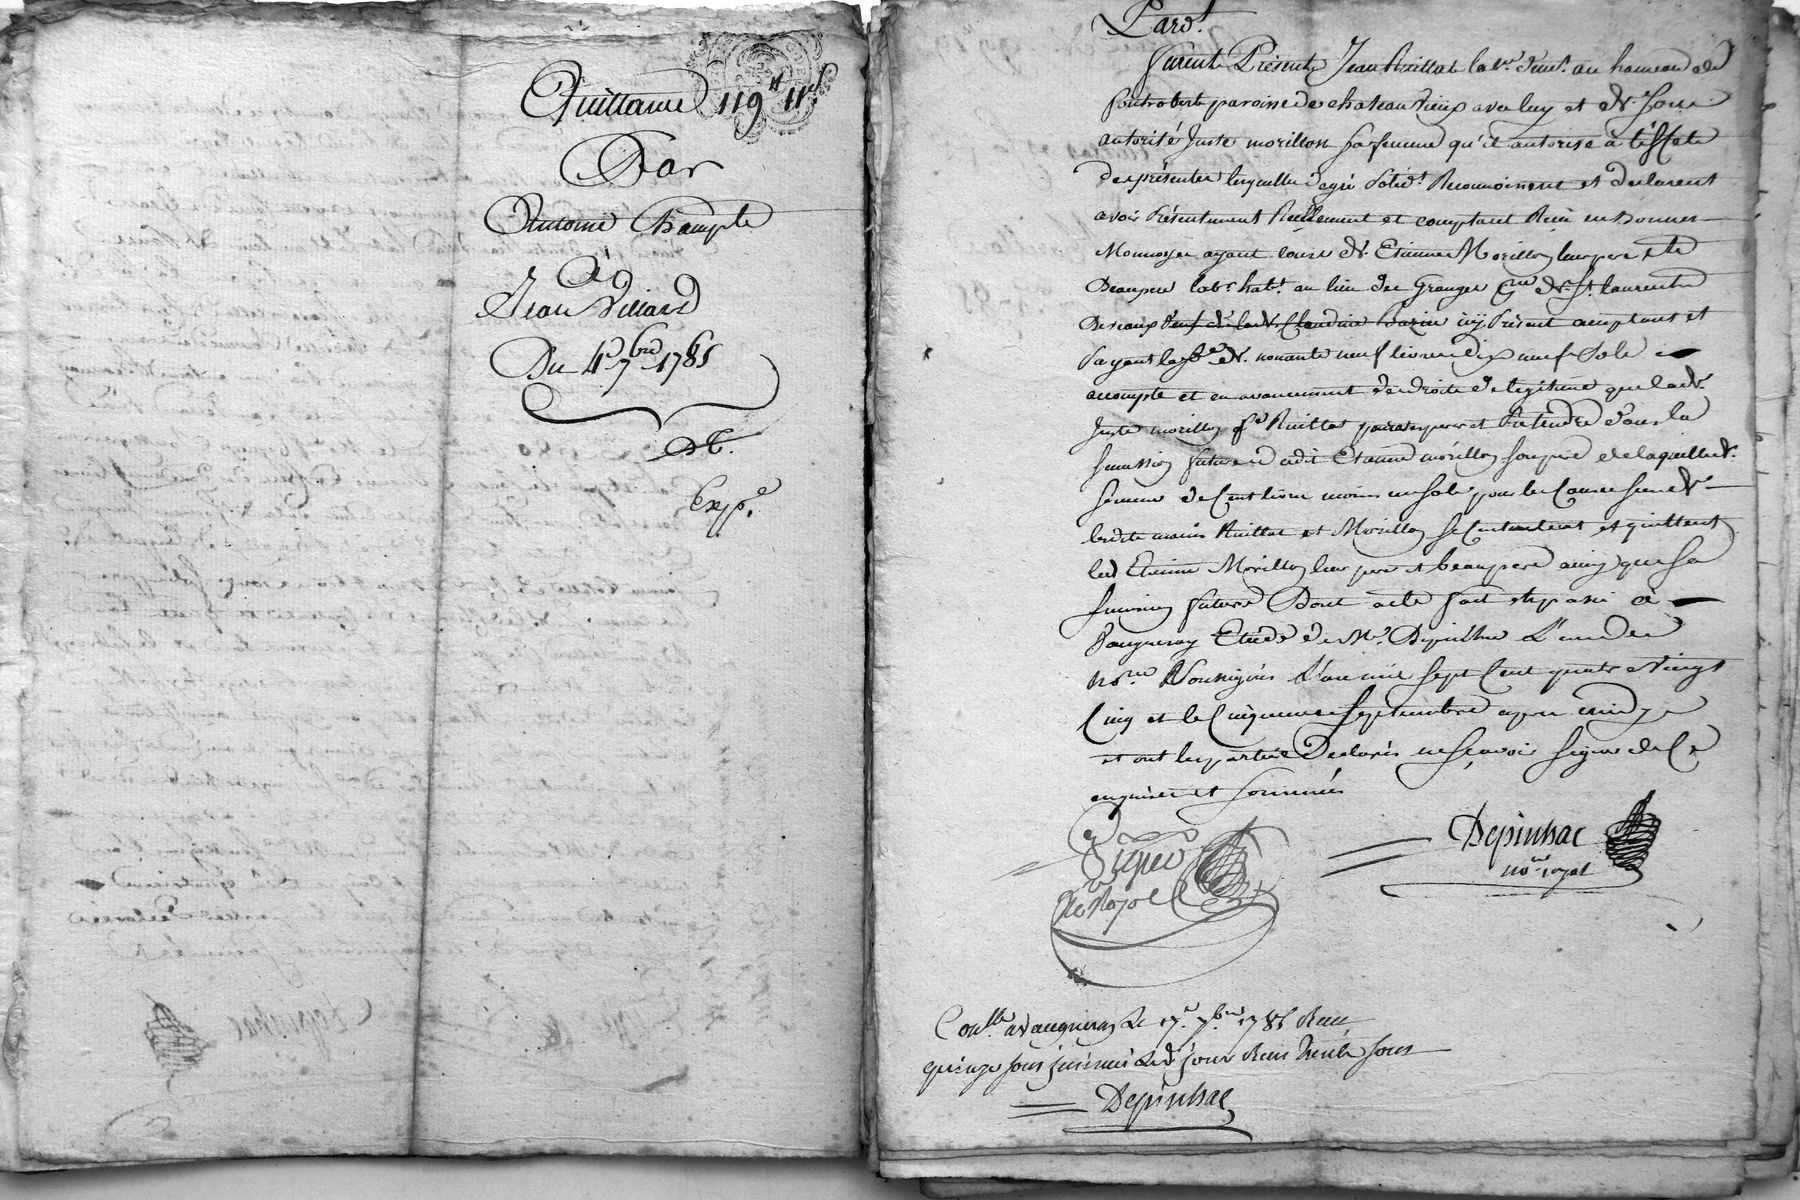 Quittance 119 # 11 s
Par
Antoine Chample
à
Jean Villard
Du 4e 7bre 1785
Exp.e
Pard.t
furent Présents Jean Ruillat lab.r deme.t au hameau de
pontrobert paroisse de chateauvieux avec luy et de son
autorité Juste morillon sa femme qu'il autorise à l'effet de
des présentes lesquelles de gré Reconnoissent et declarent
avoir Présentement Réellement et comptant Reçu en bonnes
Monnoyes ayant cours de Etienne Morillon leur pere et
Beaupere lab.r hab.t au lieu des Granges de St laurent
icy Présent acceptant et
Payant la so.e de nonante neuf livres dix neuf sols
acompte et en avancement des droits de legitime que lad.
Juste morillon f.e Ruillat et Prétendre dans la
succession future dudit Etienne morillon son pere de laquelle d.
somme de Cent livres moins un sol pour les Causes susd.
lesdits mariés Ruillat et Morillon se Contentent et quittent
led Etienne Morillon leur pere et beaupere ainsy que sa
succession future Dont acte fait et passé à
Vaugneray Etude de M.e Depinhac L'un des
No.res Soussignés L'an mil sept Cent quatre vingt
Cinq et le Cinquieme Septembre apres midy
et ont les parties Declarés ne sçavoir signer de Ce
enquises et sommées
Depinhac
no.re royal
Con.llé a vaugneray le 17.e 7.bre 1785 Reçu
quinze sous jour Reçu trente sous
Depinhac